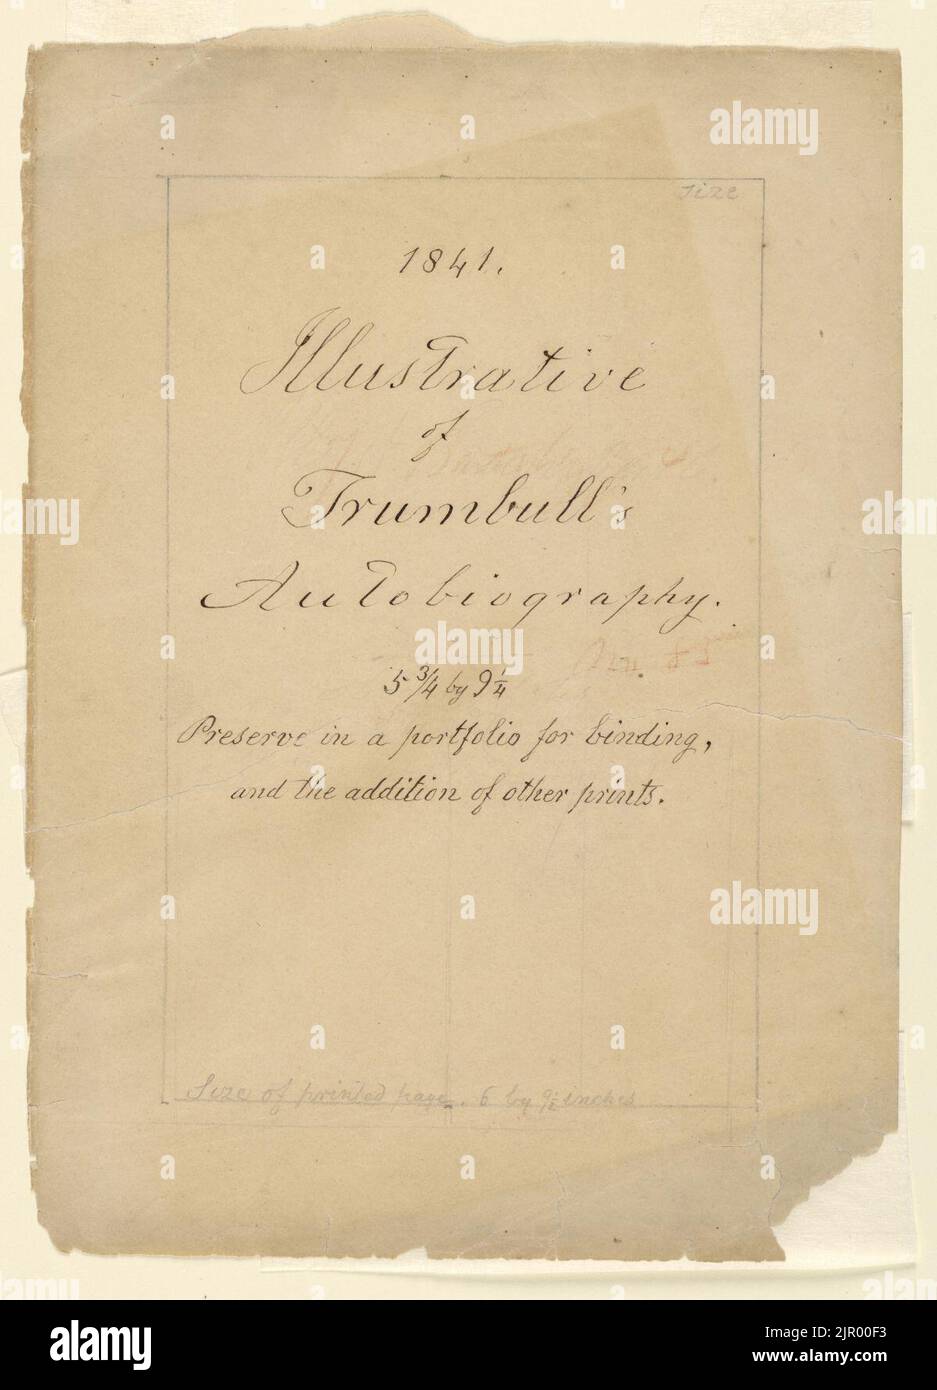 size
1841.
Illustrative
of
Trumbull's
Autobiography.
5 3/4 by 9 1/4
Preserve in a portfolio for binding,
and the addition of other prints.
Size of printed page. 6 by 9 1/2 inches
alamy
Image ID: 2JR00F3
www.alamy.com